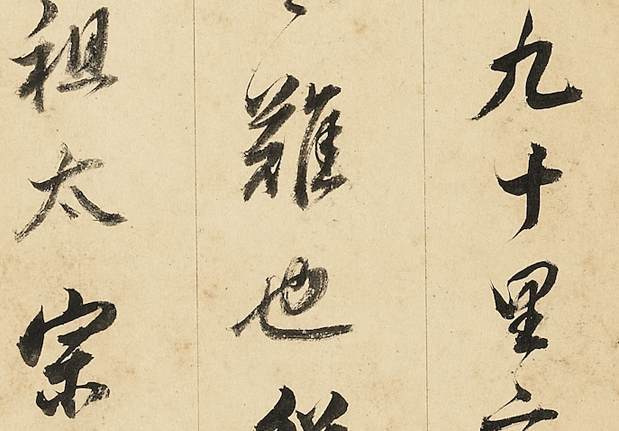 九十里
難也
祖太宗